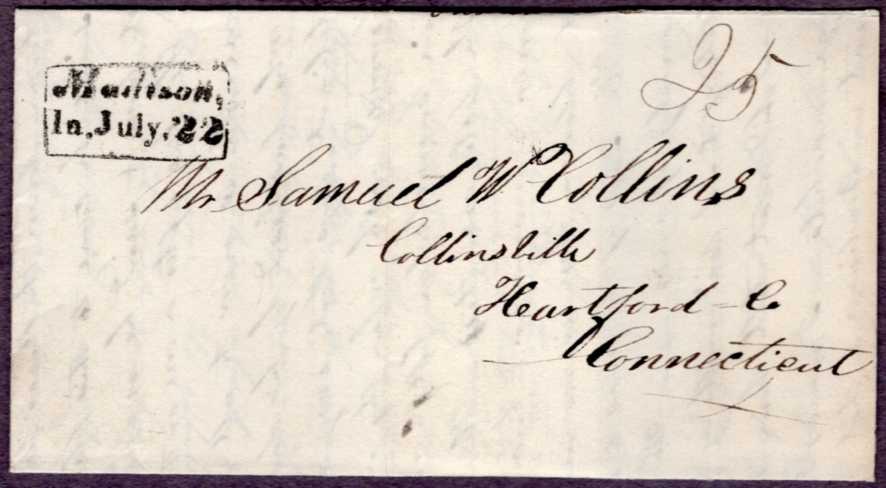 25
Madison,
In. July. 22
Mr Samuel W Collins
Collinsville
Hartford Co
Connecticut